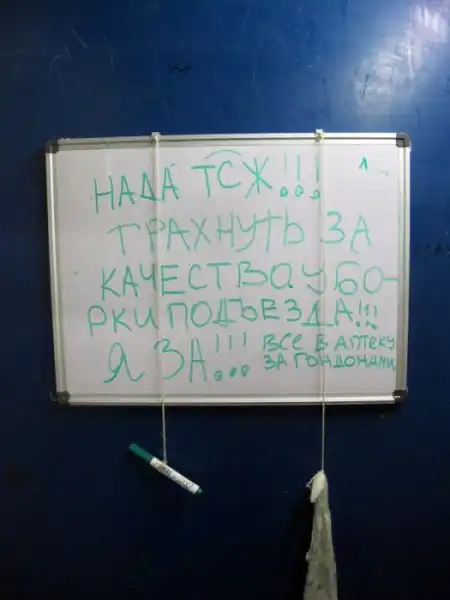 НАДА ТСЖ!!!
ТРАХНУТЬ ЗА
КАЧЕСТВО УБО-
РКИ ПОДЪЕЗДА!!!
Я ЗА!!! ВСЕ В АПТЕКУ
ЗА ГОНДОНАМИ